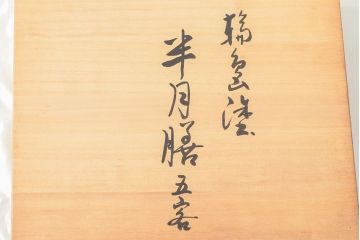 輪島塗
半月膳五客